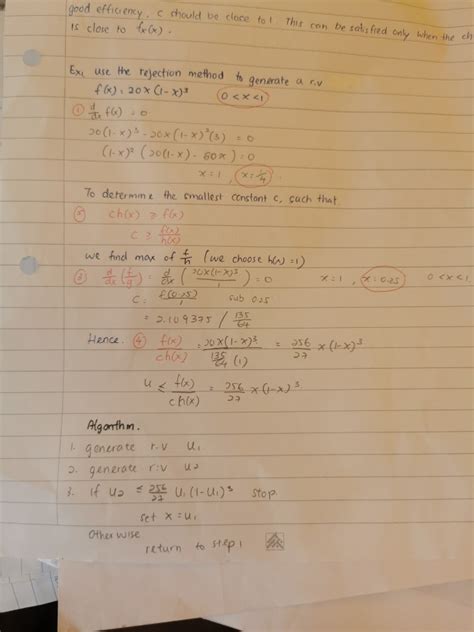 good efficiency, c should be close to 1. This can be satisfied only when the ch
is close to fx(x).
Ex1 use the rejection method to generate a r.v
f(x) = 20x(1-x)³ 0<x<1
① d/dx f(x) = 0
20(1-x)³ - 20x(1-x)²(3) = 0
(1-x)² (20(1-x) - 60x) = 0
x=1, x=1/4
To determine the smallest constant c, such that
② ch(x) ≥ f(x)
c ≥ f(x)/h(x)
we find max of f/h (we choose h(x)=1)
③ d/dx (f/g) = d/dx (20x(1-x)³/1) = 0 x=1, x=0.25 0<x<1
c = f(0.25)/1 sub 0.25
= 2.109375 / 135/64
Hence. ④ f(x)/ch(x) = 20x(1-x)³/135/64 (1) = 256/27 x(1-x)³
u ≤ f(x)/ch(x) = 256/27 x(1-x)³
Algorithm.
1. generate r.v u1
2. generate r.v u2
3. if u2 ≤ 256/27 u1(1-u1)³ stop.
set x=u1
Otherwise
return to step 1